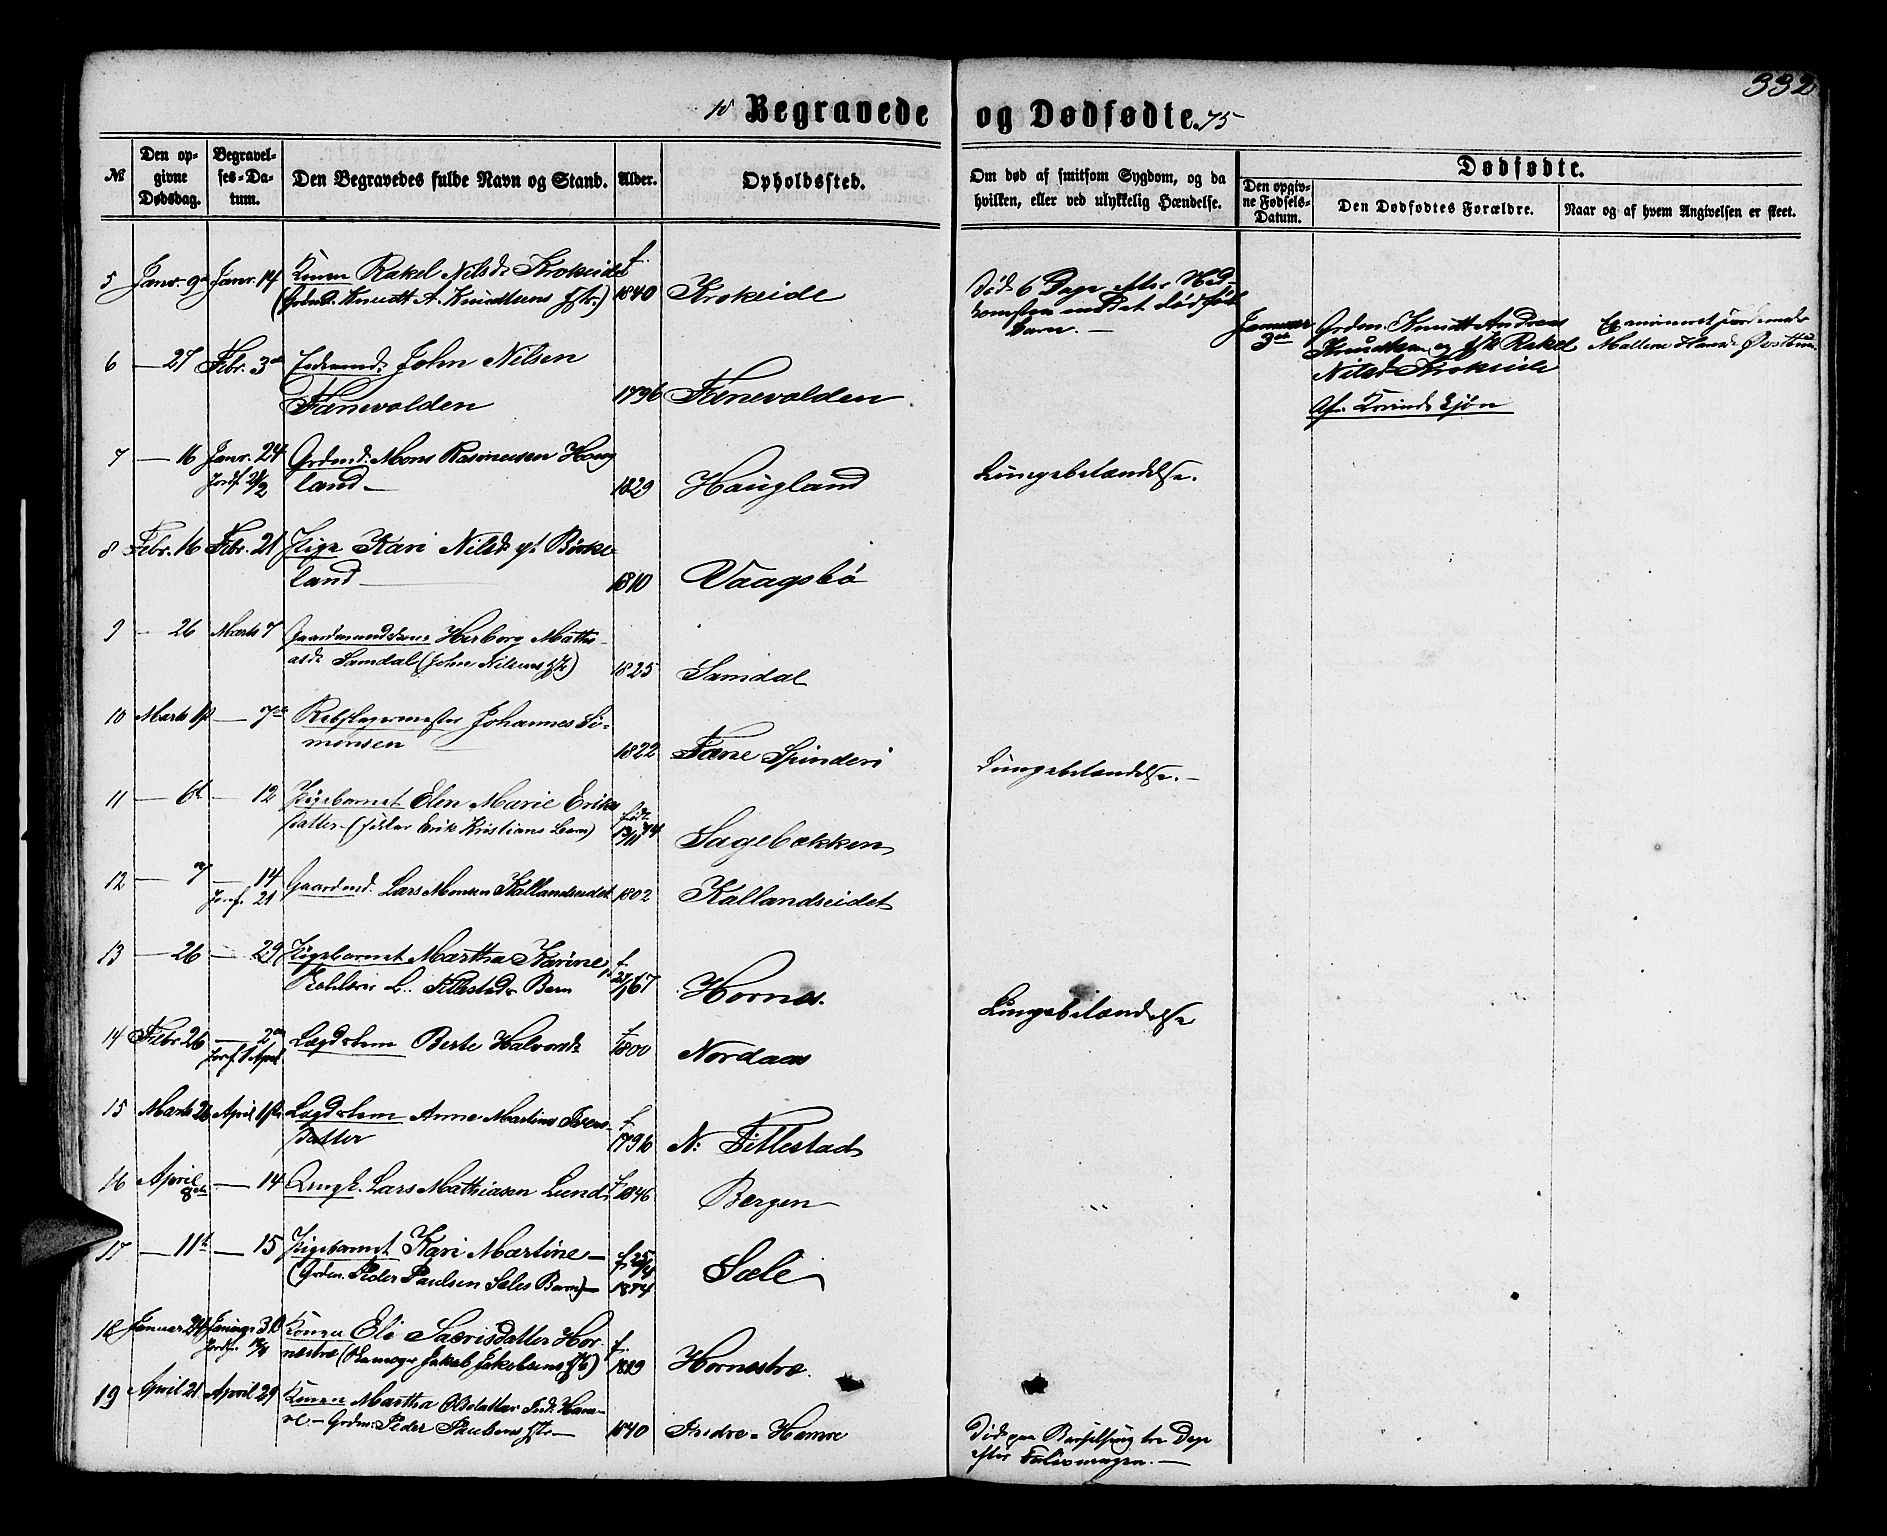 332
18 Begravede og Dødfødte. 75
№
Den opgivne Dødsdag.
Begravelses-Datum.
Den Begravedes fulde Navn og Stand.
Alder.
Opholdssted.
Om død af smitsom Sygdom, og da hvilken, eller ved ulykkelig Hændelse.
Dødfødte.
Den opgivne Fødsels-Datum.
Den Dødfødtes Forældre.
Naar og af hvem Angivelsen er skeet.
5 Janr. 9de Janr. 14 Konen Rakel Nilsdr Krokeide f.
(Grdmd. Knudt A. Knudtsens Hstr.) 1840 Krokeide
Død 6 Dage efter Ned-
komsten med et dødfødt
Barn. —
Januar
3die
Grdm. Knudt Andreas
Knudtsen og Hst Rakel
Nilsd. Krokeide
Af Kvindekjøn
Malene Hansd. Øvstun
6 — 27 Febr. 3die John Nilsen
Fanevolden 1796 Fanevolden
7 — 16 Janr. 24 Grdmd. Mons Rasmussen Haug
Jordf. 21/2 land — 1829 Haugland
Lungebetændelse.
8 Febr. 16 Febr. 21 Pige Kari Nilsdr Birke-
land — 1810 Vaagsbø
9 — 26 Marts 7 Gaardmandskone Herborg Mathi-
asdr Samdal (John Nilsens Hst) 1825 Samdal
10 Marts 1ste — 7de Rebslagermester Johannes Si-
monsen 1822 Fane Spinderi
Lungebetændelse. —
11 — 6te — 12 Pigebarnet Elen Marie Eriks
datter (Erik Kristians Barn) født 13/11 74 Sagebækken
12 — 7 — 14 Gaardmd. Lars Monsen Kallandseidet 1802 Kallandseidet
Jordf. 21
13 — 26 — 29 Pigebarnet Martha Karine, f.
L. Titlestads Barn 67 Hornes.
Lungebetændelse
14 Febr 26 — 2den Lægdslem Berte Halvorsdr f. 1800 Nordaas
Jordf. 1 April
15 Marts 26 April 1ste Lægdslem Anne Martine Ivers-
datter f. 1796 N: Titlestad
16 April 8de — 14 Ungk. Lars Mathiasen Lund f. 1846 Bergen
17 — 11te — 15 Pigebarnet Kari Martine — f. 25/4
(Grdm. Peder Paulsen Sæles Barn) — 1874 Sæle
18 Januar 24 30 Konen Eli Sjursdatter Hor-
nestræ (Jakob Jakobsens Hst) f. Hornestræ.
19 April 21 April 29 Konen Martha Olsdatter Ind. Ham-
re — Grdm. Peder Paulsens Hstr — 1840 Indre-Hamre
Død paa Barselseng tre Dage
efter —